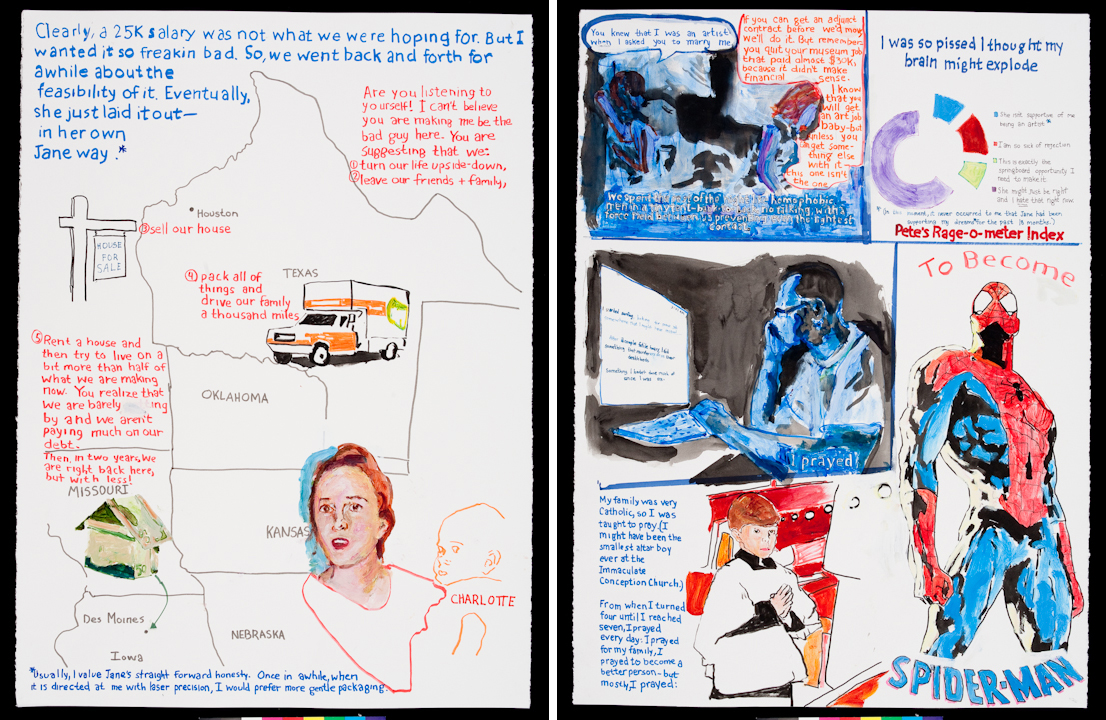 Clearly, a 25K salary was not what we were hoping for. But I
wanted it so freakin bad. So, we went back and forth for
awhile about the
feasibility of it. Eventually,
she just laid it out—
in her own
Jane way.*
Are you listening to
yourself! I can't believe
you are making me be the
bad guy here. You are
suggesting that we:
① turn our life upside-down,
② leave our friends + family,
Houston
③ sell our house
HOUSE
FOR
SALE
④ pack all of
things and
drive our family
a thousand miles
TEXAS
⑤ Rent a house and
then try to live on a
bit more than half of
what we are making
now. You realize that
we are barely
by and we aren't
paying much on our
debt.
Then, in two years, we
are right back here,
but with less!
OKLAHOMA
MISSOURI
KANSAS
CHARLOTTE
Des Moines
Iowa
NEBRASKA
*Usually, I value Jane's straight forward honesty. Once in awhile, when
it is directed at me with laser precision, I would prefer more gentle packaging.
You knew that I was an artist
when I asked you to marry me
If you can get an adjunct
contract before we'd move
we'll do it. But remember
you quit your museum job
that paid almost $30K,
because it didn't make
financial sense.
I know
that you
will get
an art job
baby-but
unless you
get some-
thing else
with it—
this one isn't
the one
We spent the rest of the like homophobic
men in a tent-back to back, no talking, with a
force field between us preventing even the lightest
contact.
I was so pissed I thought my
brain might explode
She not supportive of me
being an artist*
I am so sick of rejection
This is exactly the
springboard opportunity I
need to make it.
She might just be right
and I hate that right now.
*(In the moment, it never occurred to me that Jane had been
supporting my dreams for the past 18 months.)
Pete's Rage-o-meter Index
I started
Something I hadn't done much of
since I was
I prayed
To Become
My family was very
Catholic, so I was
taught to pray. (I
might have been the
smallest altar boy
ever at the
Immaculate
Conception Church.)
From when I turned
four until I reached
seven, I prayed
every day: I prayed
for my family, I
prayed to become a
better person- but
mostly, I prayed:
SPIDER-MAN